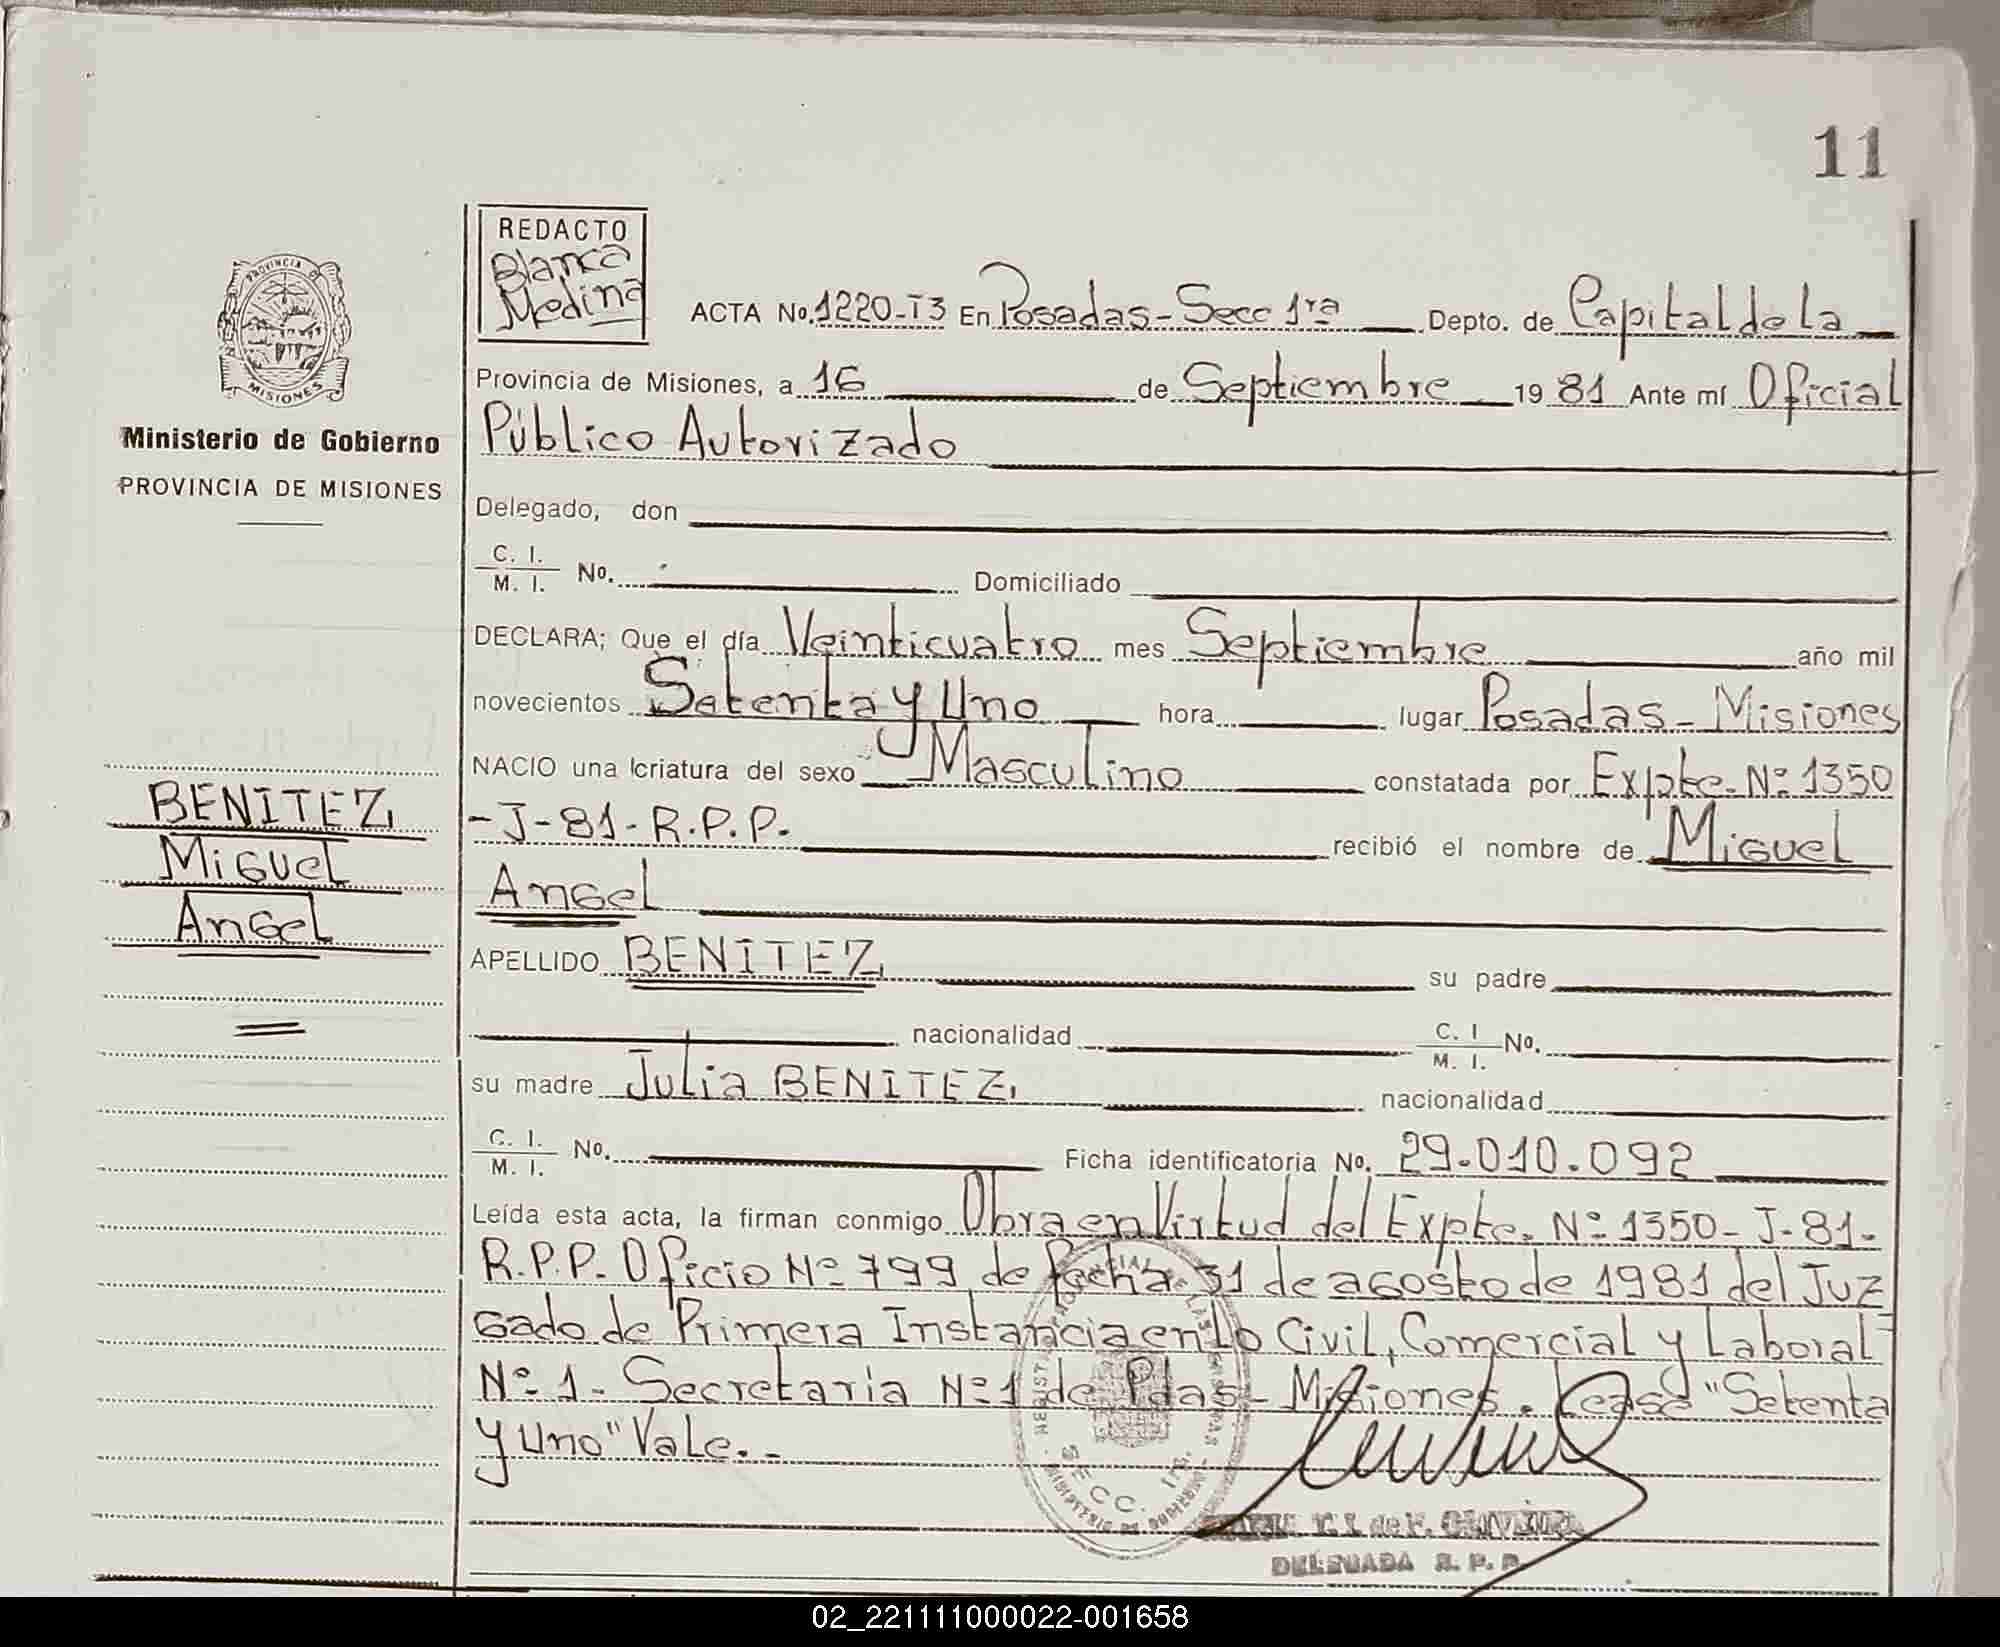 11
REDACTO
Blanca
Medina
PROVINCIA DE
MISIONES
ACTA No. 1220-T3 En Posadas - Secc 1ra Depto. de Capital de la
Provincia de Misiones, a 16 de Septiembre 1981 Ante mí Oficial
Ministerio de Gobierno
Público Autorizado
PROVINCIA DE MISIONES
Delegado, don
C. I. / M. I. No. Domiciliado
DECLARA; Que el día Veinticuatro mes Septiembre año mil
novecientos Setenta y Uno hora lugar Posadas - Misiones
NACIO una criatura del sexo Masculino constatada por Expte. Nº 1350
BENITEZ,
- J - 81 - R.P.P. recibió el nombre de Miguel
Miguel
Angel
Angel
APELLIDO BENITEZ, su padre
nacionalidad C. I / M. I. No.
su madre Julia BENITEZ, nacionalidad
C. I. / M. I. No. Ficha identificatoria No. 29.010.092
Leída esta acta, la firman conmigo Obra en Virtud del Expte. Nº 1350 - J - 81 -
R.P.P. Oficio Nº 799 de fecha 31 de agosto de 1981 del Juz
gado de Primera Instancia en lo Civil, Comercial y Laboral
Nº 1 - Secretaria Nº 1 de Pdas - Misiones. Lease "Setenta
y Uno" Vale. -
SECC. 1ra.
DELEGADA R. P. P.
02_221111000022-001658